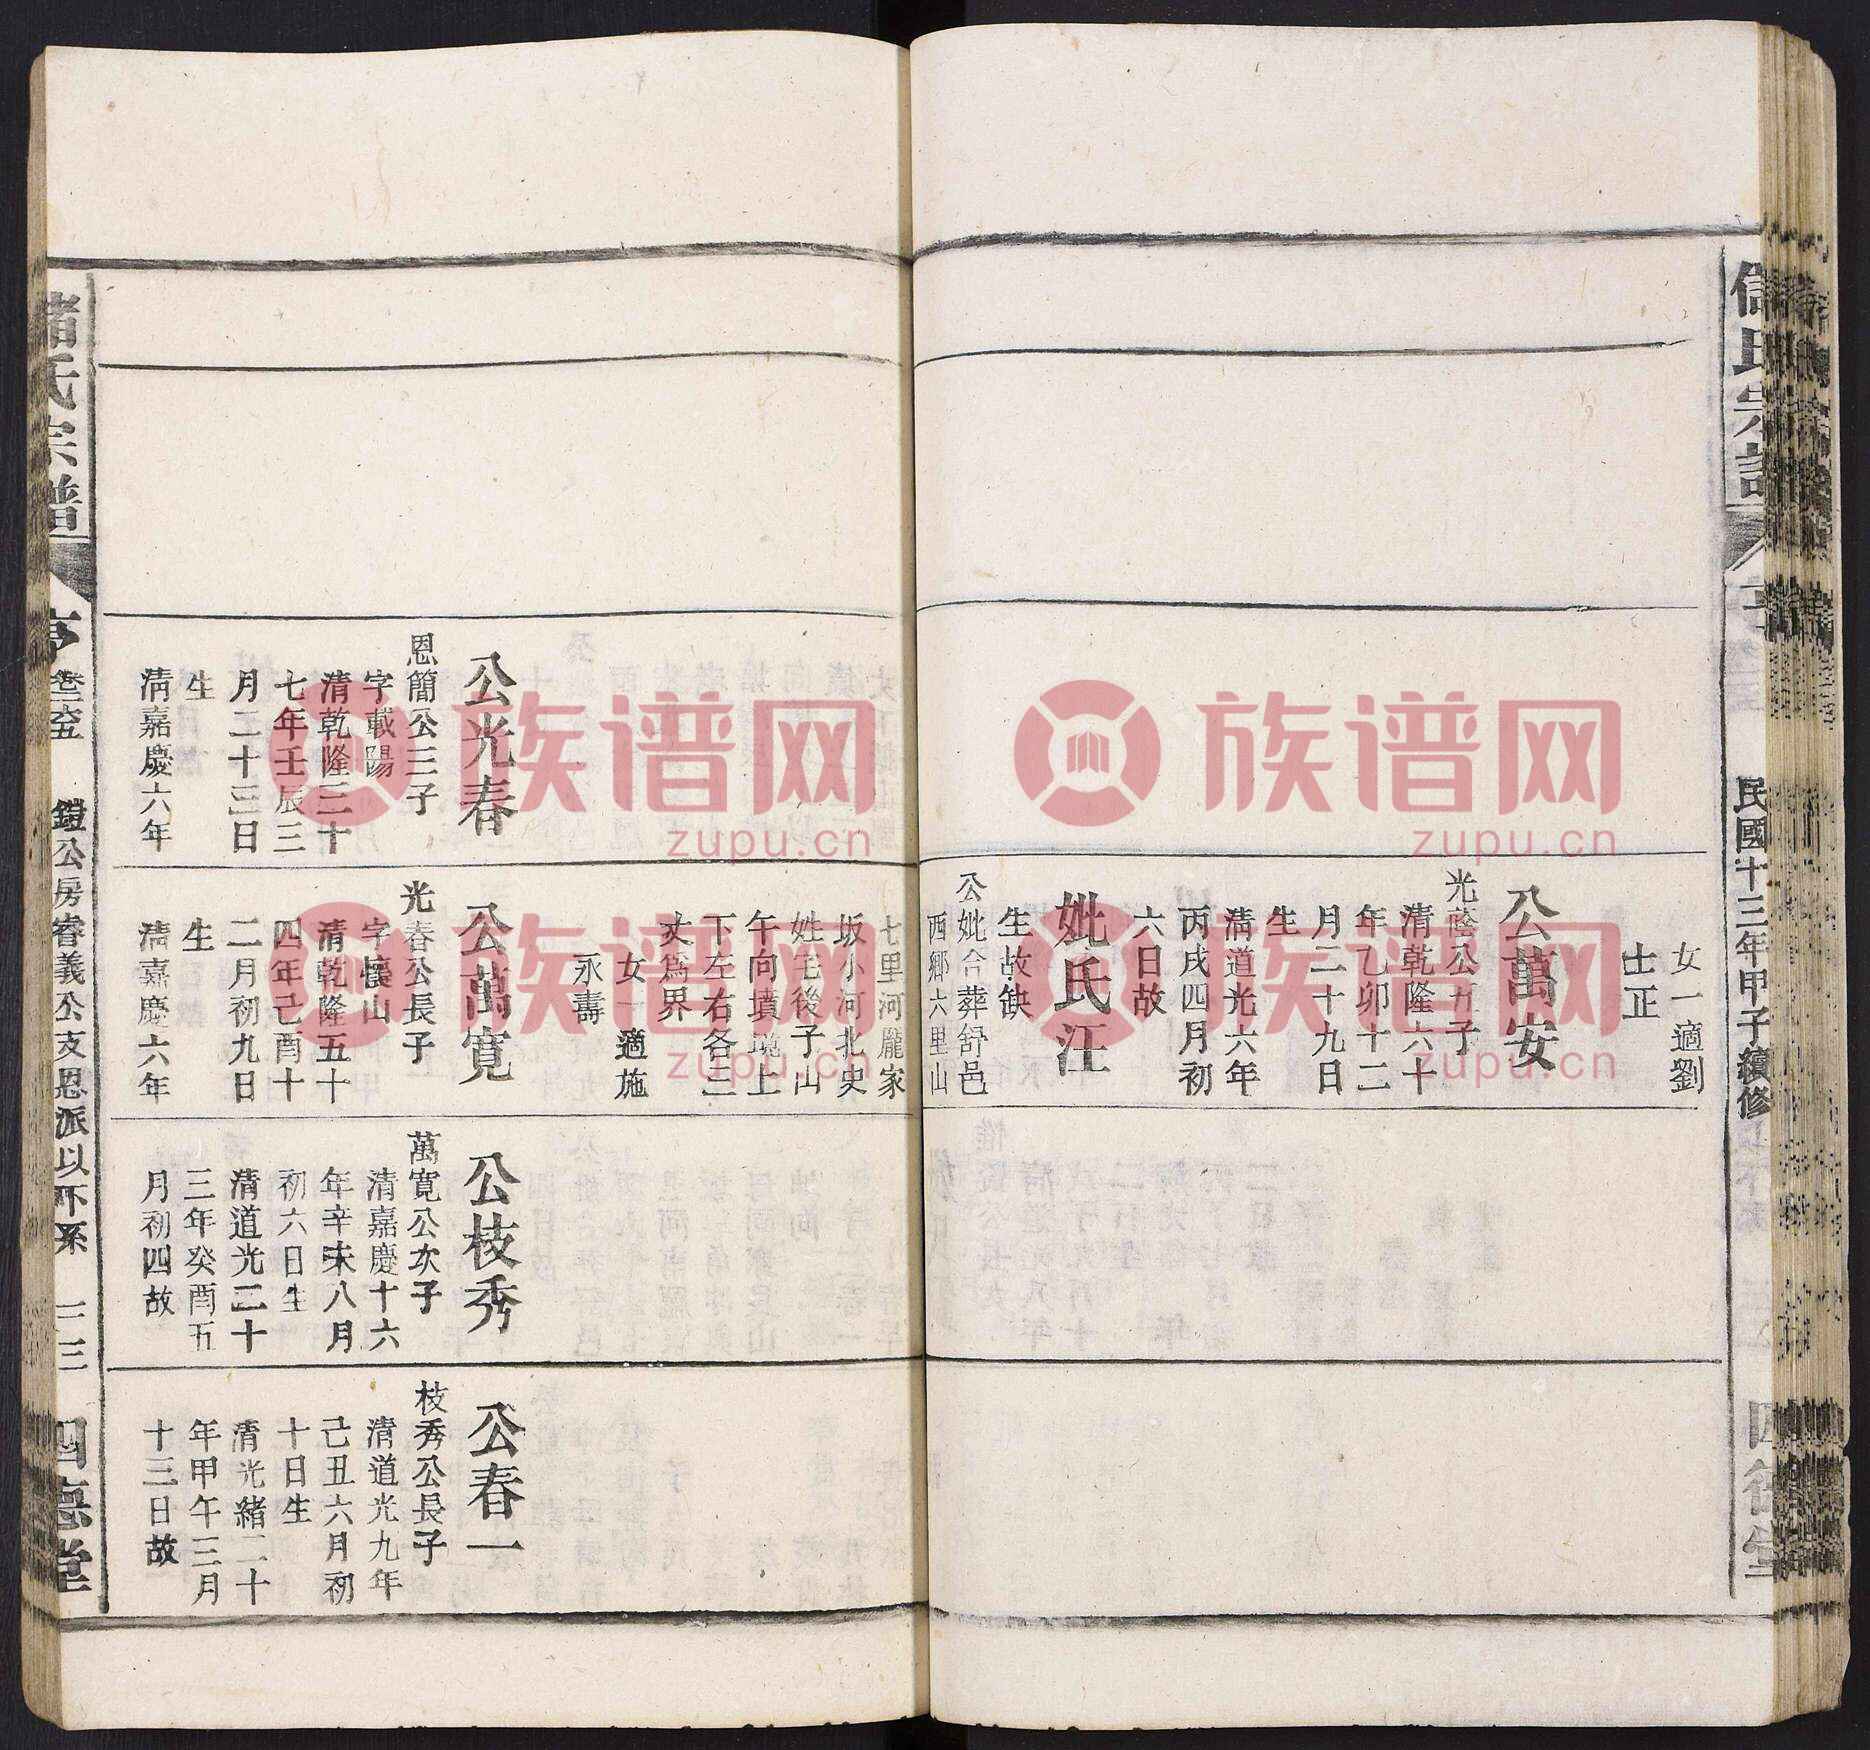 民國十三年甲子續修
女一適劉
士正
公萬安
光蔭公五子
清乾隆六十
年乙卯十二
月二十九日
生
清道光六年
丙戌四月初
六日故
妣氏汪
生故缺
公妣合葬舒邑
西鄉六里山
七里河龐家
坂小河北史
姓毛後子山
午向墳境上
下左右各三
丈為界
女一適施
永壽
公光春
恩簡公三子
字載陽
清乾隆三十
七年壬辰三
月二十三日
生
清嘉慶六年
公萬寬
光春公長子
字懷山
清乾隆五十
四年己酉十
二月初九日
生
清嘉慶六年
公枝秀
萬寬公次子
清嘉慶十六
年辛未八月
初六日生
清道光二十
三年癸酉五
月初四故
公春一
枝秀公長子
清道光九年
己丑六月初
十日生
清光緒二十
年甲午三月
十三日故
氏宗譜
鎧公房睿義公支恩派以下系
二三
四德堂
族谱网
zupu.cn
族谱网
zupu.cn
族谱网
zupu.cn
族谱网
zupu.cn